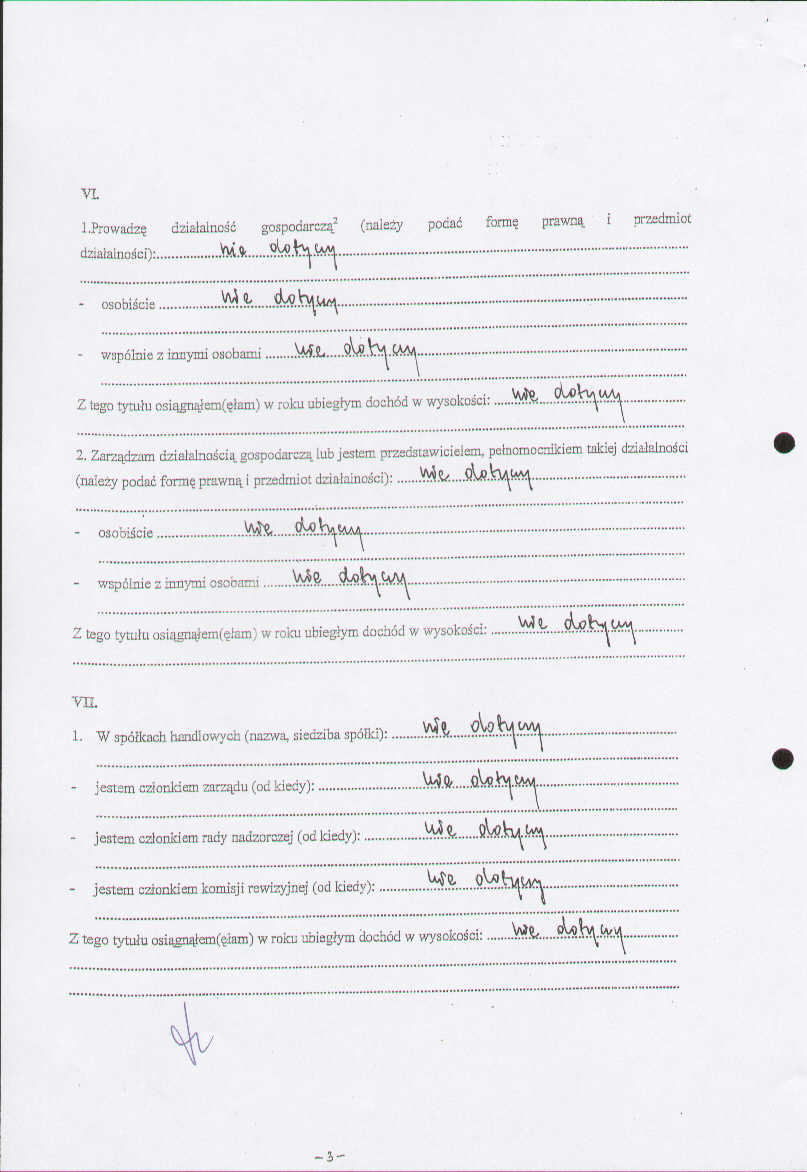 VI.
1.Prowadzę działalność gospodarczą² (należy podać formę prawną i przedmiot
działalności):..................nie dotyczy..................
- osobiście..................nie dotyczy..................
- wspólnie z innymi osobami........nie dotyczy..................
Z tego tytułu osiągnąłem(ęłam) w roku ubiegłym dochód w wysokości: .....nie dotyczy..................
2. Zarządzam działalnością gospodarczą lub jestem przedstawicielem, pełnomocnikiem takiej działalności
(należy podać formę prawną i przedmiot działalności): ......nie dotyczy..................
- osobiście..................nie dotyczy..................
- wspólnie z innymi osobami........nie dotyczy..................
Z tego tytułu osiągnąłem(ęłam) w roku ubiegłym dochód w wysokości: ........nie dotyczy............
VII.
1. W spółkach handlowych (nazwa, siedziba spółki): .........nie dotyczy..................
- jestem członkiem zarządu (od kiedy): ..................nie dotyczy..................
- jestem członkiem rady nadzorczej (od kiedy): ..............nie dotyczy..................
- jestem członkiem komisji rewizyjnej (od kiedy): ............nie dotyczy..................
Z tego tytułu osiągnąłem(ęłam) w roku ubiegłym dochód w wysokości: ......nie dotyczy..............
-3-